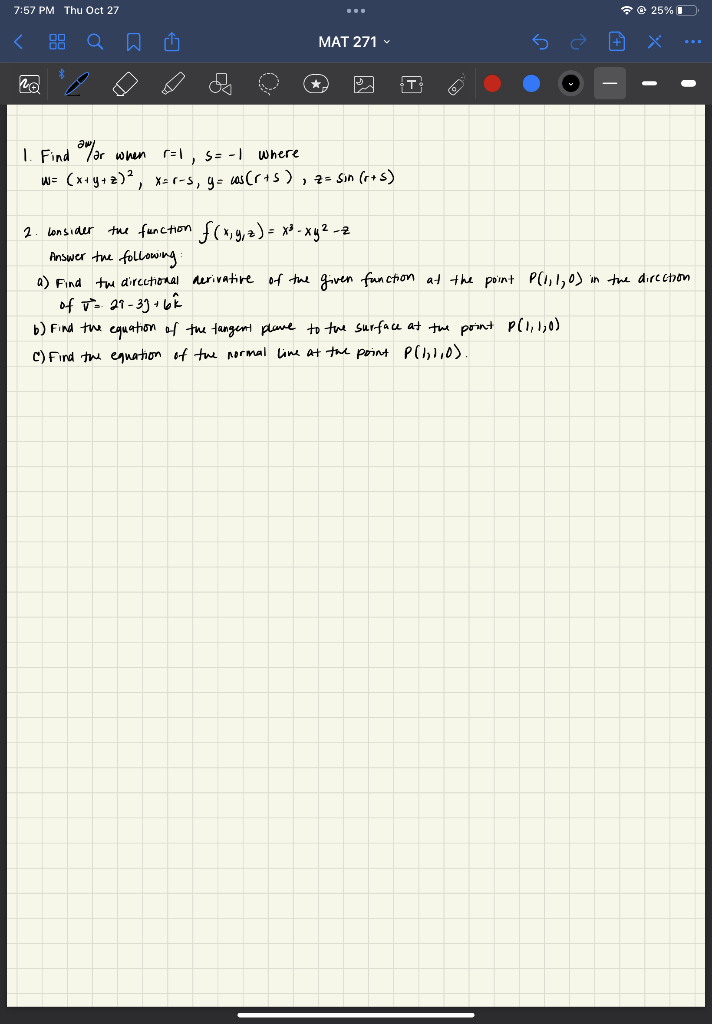 7:57 PM Thu Oct 27
25%
MAT 271
T
1. Find ∂w/∂r when r=1, s= -1 where
w= (x+y+z)², x=r-s, y= cos(r+s), z= sin(r+s)
2. Consider the function f(x,y,z)= x³-xy²-z
Answer the following:
a) Find the directional derivative of the given function at the point P(1,1,0) in the direction
of v⃗= 2î-3ĵ+6k̂
b) Find the equation of the tangent plane to the surface at the point P(1,1,0)
c) Find the equation of the normal line at the point P(1,1,0).